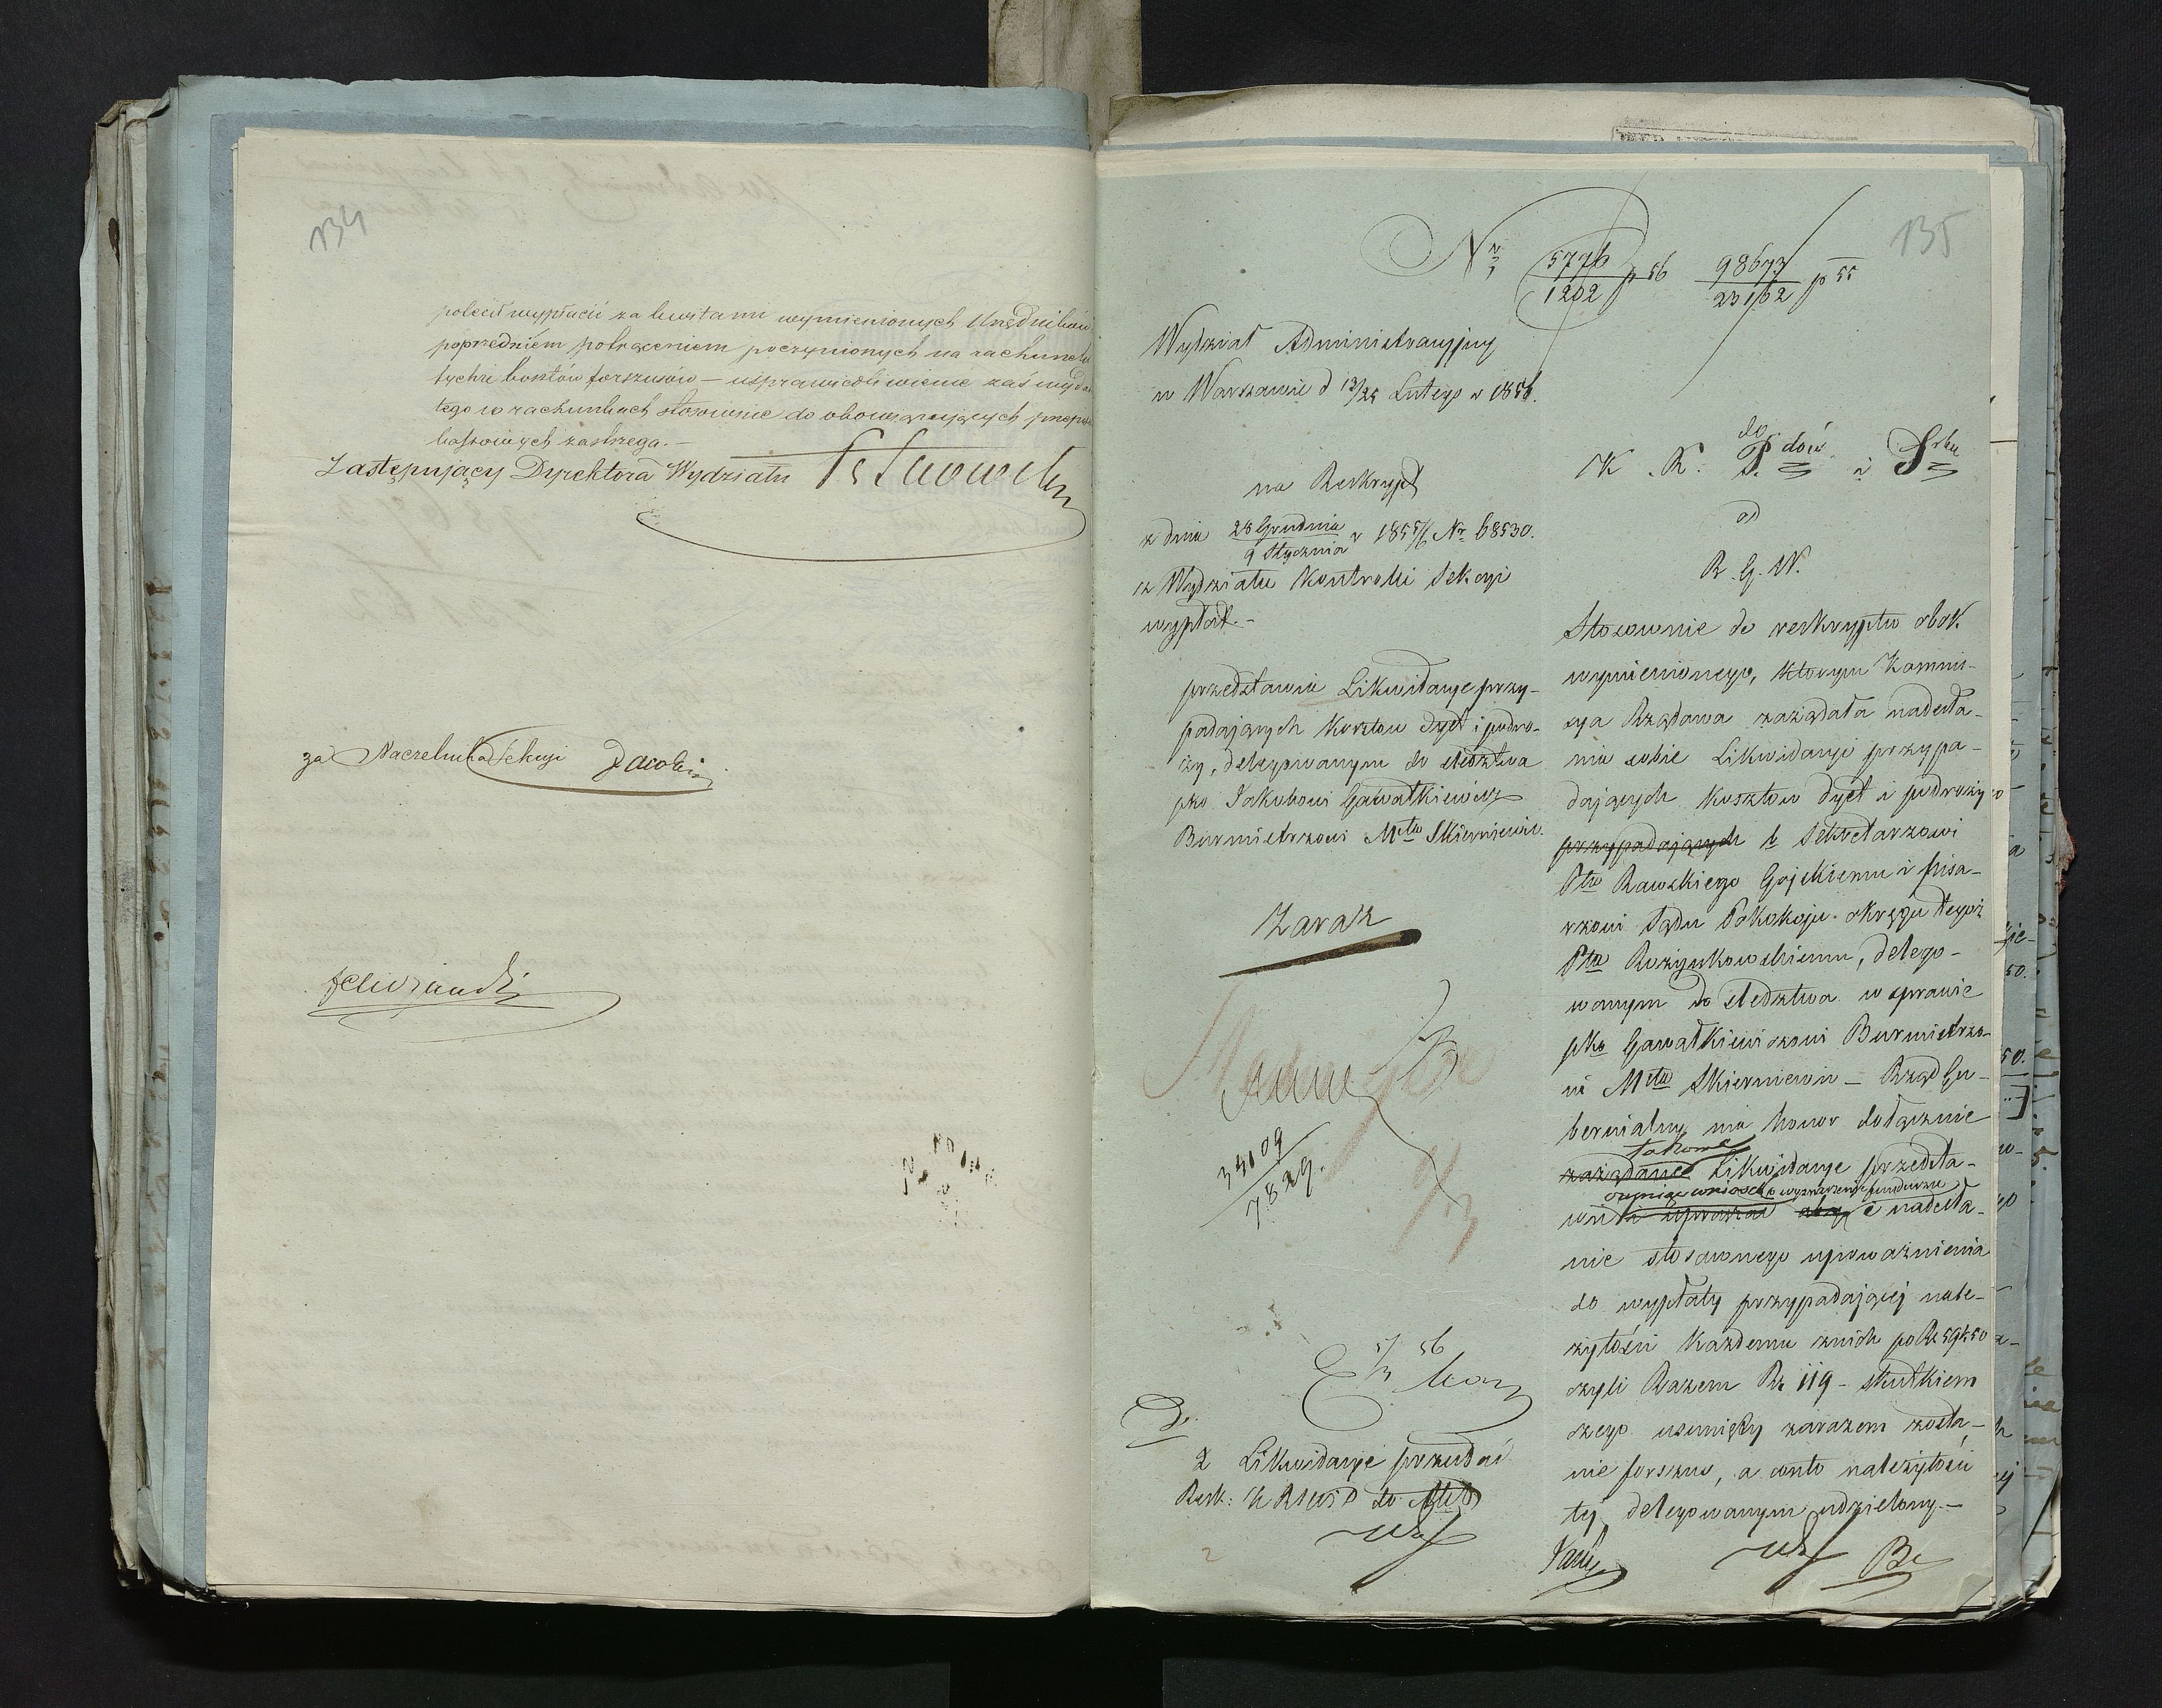 134
polecił wypłacić za kwitami wymienionych Urzędników
poprzedniém potrąceniem poczynionych na rachunek
tychże kosztów forszusów – usprawiedliwienie zaś wyda
tego w rachunkach stosownie do obowązujących przep
kassowych zastrzega. –
Zastępujący Dyrektora Wydziału
za Naczelnika Sekcyi Jacobi
135
Nr 5776/1202 p 56 98673/23162 p 55
Wydział Administracyjny
w Warszawie d 13/25 Lutego r 1856.
do
K. R. P. dów i Srbu
od
R. G. W.
na Reskrypt
z dnia 28 Grudnia/9 Stycznia r 1855/6 Nr 68530.
z Wydziału Kontrolli Sekcyi
wypłat. –
przedstawia Likwidacye przy-
padających kosztow dyet i podro-
ży, delegowanym do śledztwa
pko Jakubowi Gawałkiewicz
Burmistrzowi Mta Skierniewic.
Zaraz
34109
7829.
5/3 56
2 Likwidacye
Stosownie do reskryptu obok
wymienionego, ktorym Kommis-
sya Rządowa zażądała nadesła-
nia sobie Likwidacyi przypa-
dających kosztow dyet i podroży
przypadających b Sekretarzowi
Ptu Rawskiego Gojskiemu i pisa-
rzowi Sądu Pokokoju okręgu tegoż
Ptu Rożynkowskiemu, delego-
wanym do śledztwa w sprawie
pko Gawałkiewiczowi Burmistrzo-
wi Mta Skierniewic – Rząd Gu-
bernialny ma honor dołącznie
takowe
zażądane Likwidacye przedsta-
wić i upraszać aby o nadesła-
nie stosownego upoważnienia
do wypłaty przypadającej nale-
żytości każdemu znich po Rs 59 k 50
czyli Razem Rs 119 – skutkiem
czego usunięty zarazem zosta-
nie forszus, a conto należytości
tej delegowanym udzielony. –